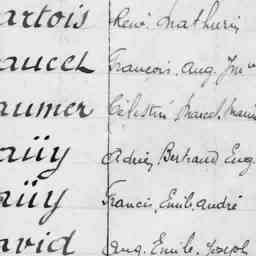 artois René. Mathurin
aucel Francois. Aug. Jm
aumer Célestin Marcel. Marie
aüy Adrien Bertrand Eug.
aüy Francis, Emile. andré
avid Aug. Emile. Joseph